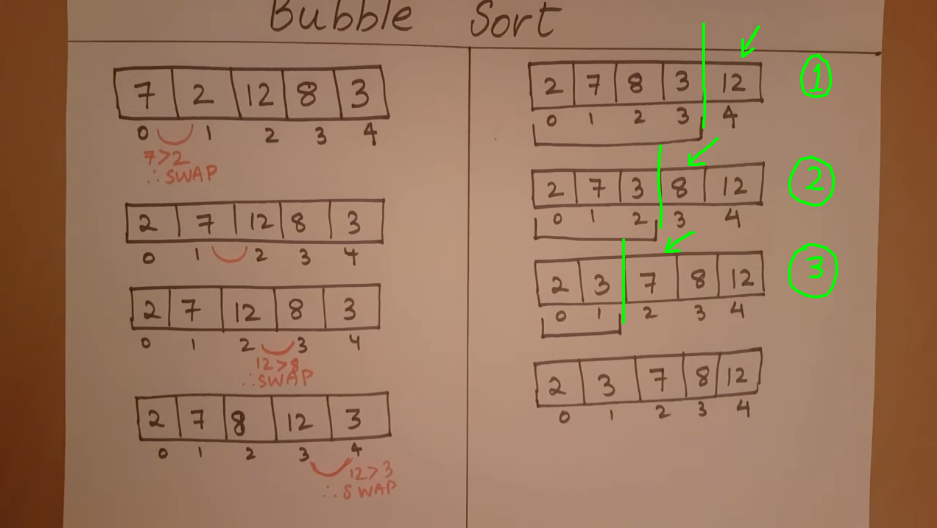 Bubble Sort
7 2 12 8 3
0 1 2 3 4
7>2
∴SWAP
2 7 12 8 3
0 1 2 3 4
2 7 12 8 3
0 1 2 3 4
12>8
∴SWAP
2 7 8 12 3
0 1 2 3 4
12>3
∴SWAP
2 7 8 3 12 1
0 1 2 3 4
2 7 3 8 12 2
0 1 2 3 4
2 3 7 8 12 3
0 1 2 3 4
2 3 7 8 12
0 1 2 3 4